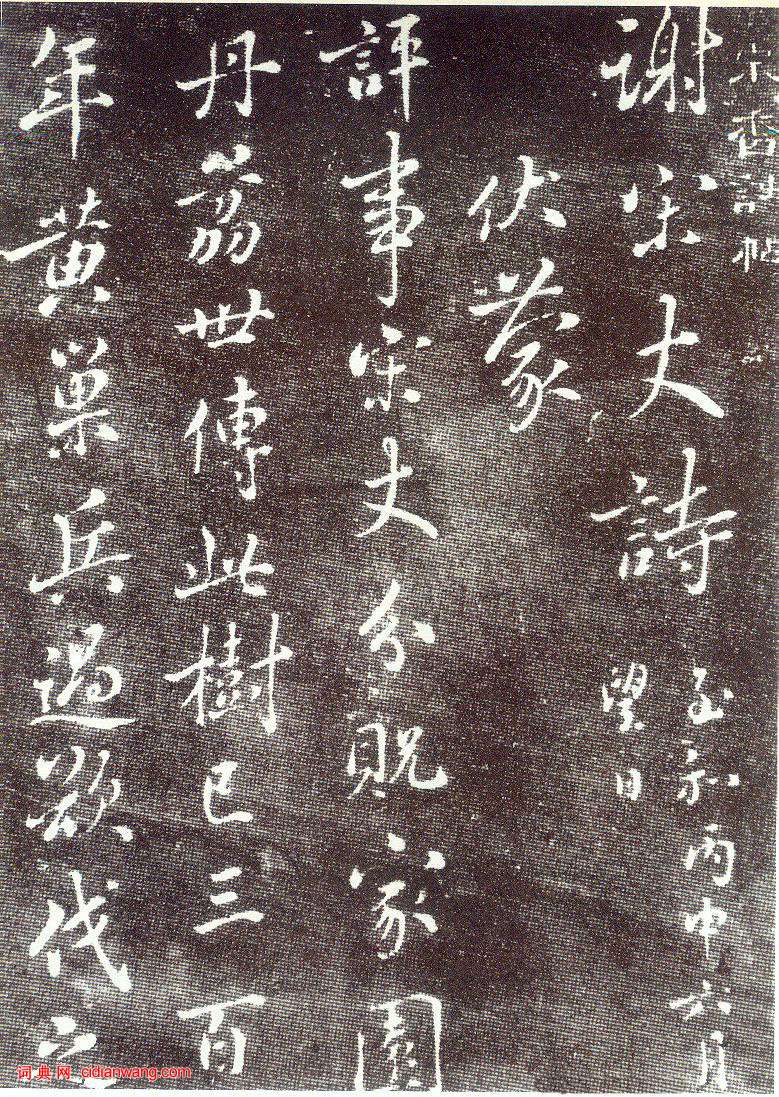 宋蔡詩帖
謝宋丈詩
至和丙申六月
望日
伏蒙
評事宋丈分貺家園
丹荔世傳此樹已三百
年黄巢兵過欲伐之
词典网 cidianwang.com